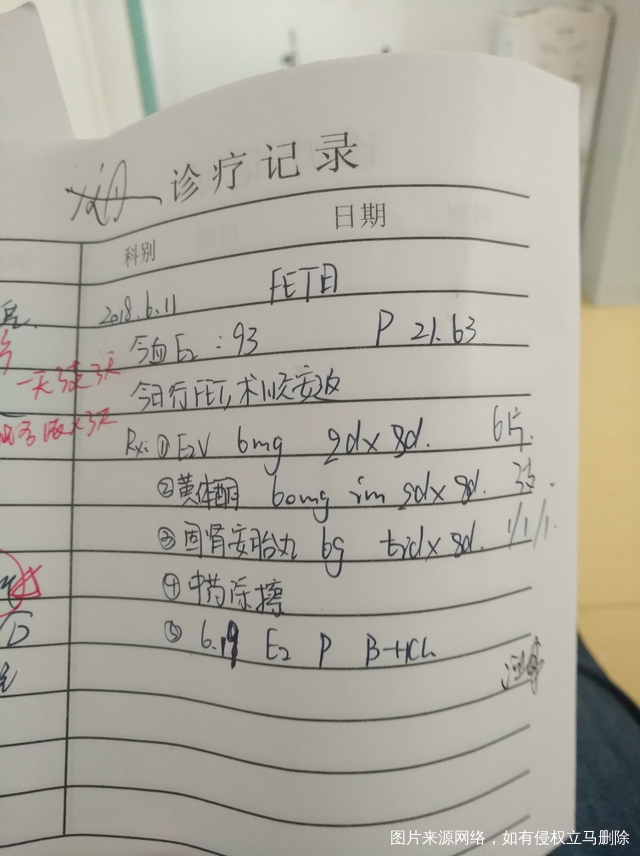 诊疗记录
科别 日期
2018.6.11 FET日
今血E2:93 P 21.63
今日行FET,术顺安返
一天3支3天
Rx:①E2V 6mg qd×8d. 6片.
②黄体酮 60mg im qd×8d. 3支.
③固肾安胎丸 6g tid×8d. 1/1/1.
④中药涂擦
⑤ 6.19 E2 P B-HCG
图片来源网络，如有侵权立马删除